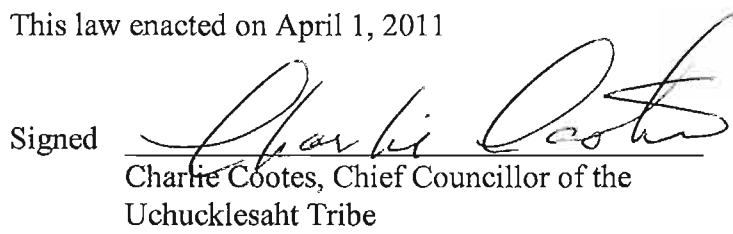 This law enacted on April 1, 2011
Signed Charlie Cootes
Charlie Cootes, Chief Councillor of the
Uchucklesaht Tribe